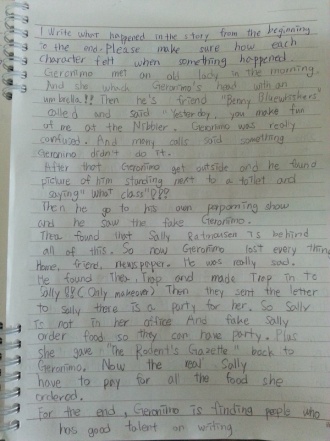 1 Write what happened in the story from the beginning
to the end. Please make sure how each
character felt when something happened
Geronimo met an old lady in the morning.
And she which Geronimo's head with an
umbrella!! Then he's friend "Benny Bluewhiskers"
called and said "Yesterday, you make fun
of me at the Nibbler. Geronimo was really
confused. And many calls said something
Geronimo didn't do it.
After that Geronimo get outside and he found
picture of him standing next to a toilet and
saying "What class"???
Then he go to his own performing show
and he saw the fake Geronimo.
They found that Sally Ratmousen is behind
all of this. So now Geronimo lost every thing
Home, friend, newspaper. He was really sad.
He found Thea, Trap and made Trap in to
Sally (Only makeover) Then they sent the letter
to Sally there is a party for her. So Sally
is not in her office And fake Sally
order food so they can have party. Plus
she gave "The Rodent's Gazette" back to
Geronimo. Now the real Sally
have to pay for all the food she
ordered.
For the end, Geronimo is finding people who
has good talent on writing